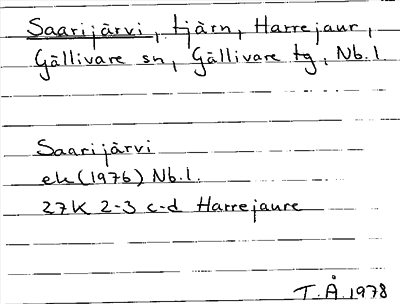 Saarijärvi, tjärn, Harrejaur,
Gällivare sn, Gällivare tg, Nb.l.
Saarijärvi
ek (1976) Nb.l.
27K 2-3 c-d Harrejaure
T.Å.1978